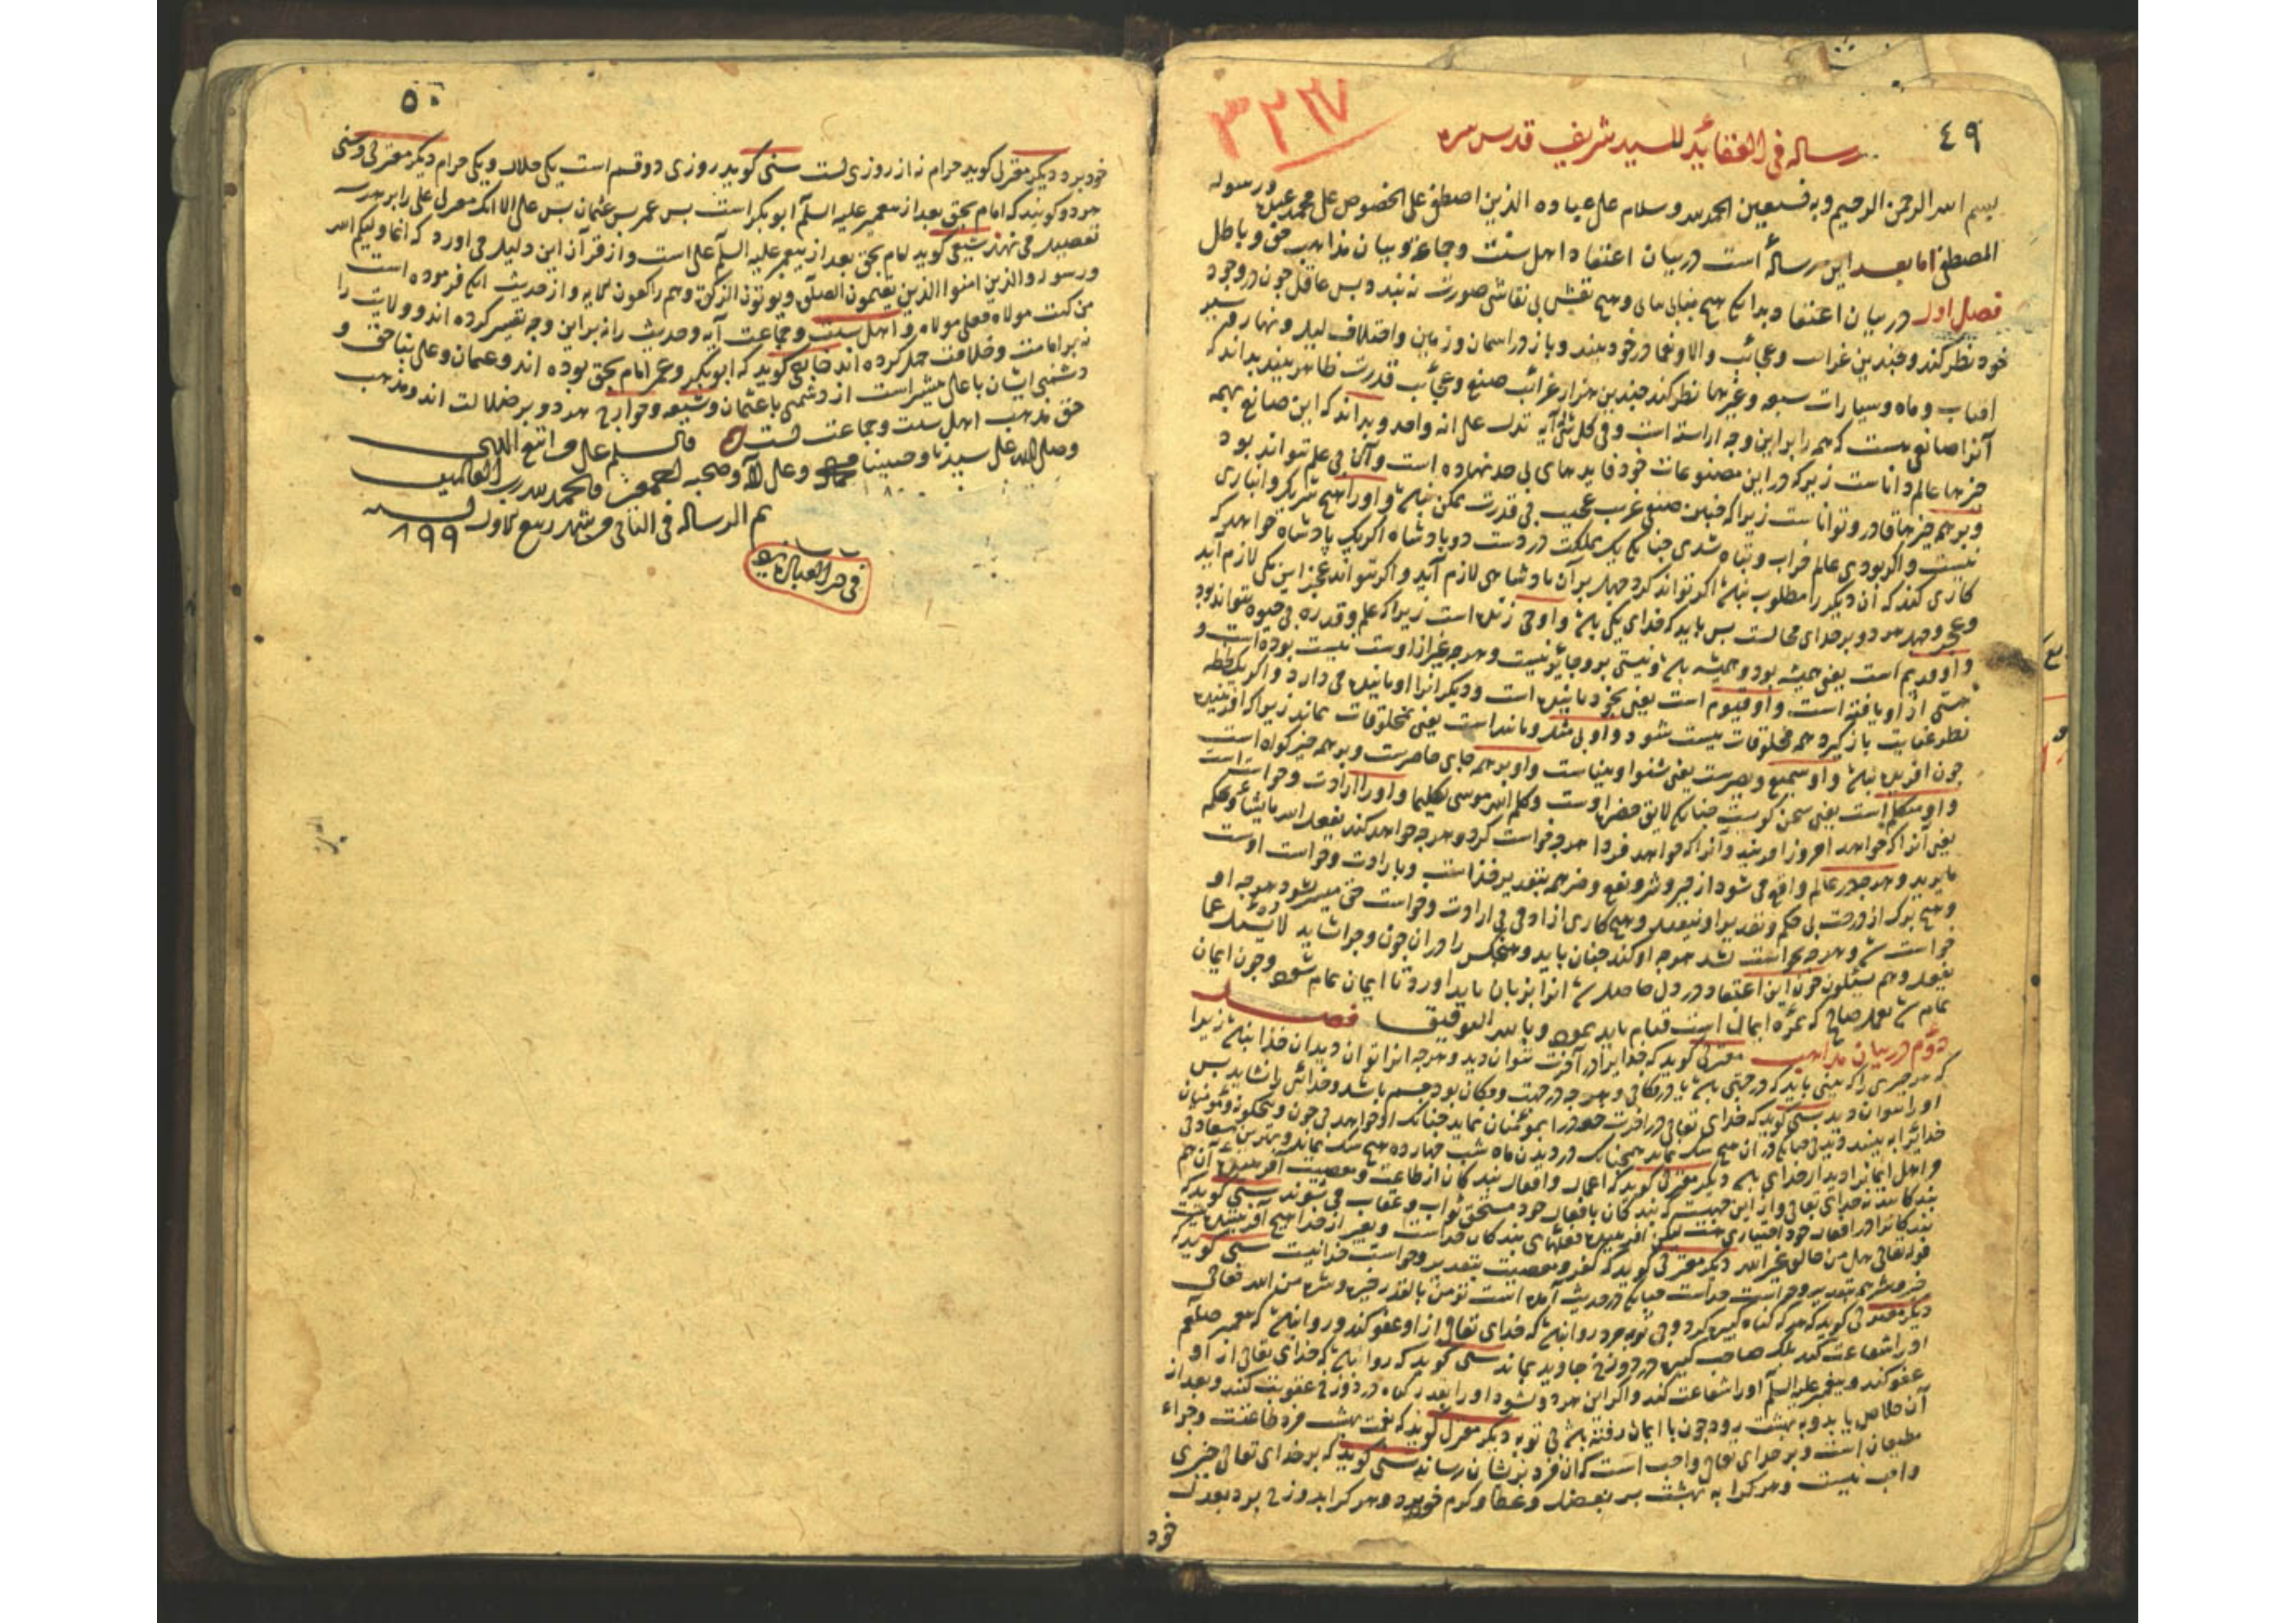 ٤٩
٣٢٦٧
رساله فی العقائد للسید شریف قدس سره
بسم الله الرحمن الرحیم وبه نستعین الحمد لله وسلام علی عباده الذین اصطفی علی الخصوص علی محمد عبده ورسوله
المصطفی اما بعد این رساله است در بیان اعتقاد اهل سنت وجماعة وبیان مذاهب حق وباطل
فصل اول در بیان اعتقاد بدانکه هیچ بنایی بی بنا وهیچ نقش بی نقاش صورت نبندد پس عاقل چون در وجود
خود نظر کند وچندین غرایب وعجائب وآلا ونعما در خود بیند وباز در اسمان وزمین واختلاف لیل ونهار وسیر
افتاب وماه وسیارات سبعه وغیرها نظر کند چندین هزار غرائب صنع وعجائب قدرت ظاهر بیند بداند که
آنرا صانعی هست که همه را برین وجه اراسته است وفی کل شئ له آیه تدل علی انه واحد وبداند که این صانع بهمه
چیزها عالم ودانا ست زیرکه در این مصنوعات خود فایدهای بی حد نهاده است وآن بی علم نتواند بود
وبر همه چیزها قادر وتوانا ست زیراکه چنین صنع غریب عجیب بی قدرت ممکن نباشد واورا هیچ شریک وانبازی
نیست واگر بودی عالم خراب وتباه شدی چنانکه یک مملکت در دست دو پادشاه اگر یک پادشاه خواهد که
کاری کند که آن دیگر را مطلوب نباشد اگر نتواند کرد جهل بر آن پادشاهی لازم آید واگر تواند عجز این یکی لازم آید
وعجز وجهل هر دو بر خدای محالست پس باید که خدای یکی باشد واو حی زنده است زیراکه علم وقدرة بی حیوة نتواند بود
واو قدیم است یعنی همیشه بود وهمیشه باشد ونیستی برو جائز نیست وهرچه غیر ازاوست نیست بوده است و
هستی ازاو یافته است واو قیوم است یعنی بخود پاینده است ودیگرانرا او پاینده می دارد واگر یک لحظه
نظر عنایت بازگیرد همه مخلوقات نیست شود واو بی مثل ومانند است یعنی بمخلوقات نماند زیراکه آفریننده
چون افریده نباشد واو سمیع وبصیرست یعنی شنوا وبیناست واو بر همه جای حاضرست وبر همه چیز گواه است
واو متکلم است یعنی سخن گوست چنانکه لایق حضرت اوست وکلم الله موسی تکلیما واورا ارادت وخواست است
یعنی آنرا که خواهد امروز افریند وآنرا که خواهد فردا هرچه خواست کرد وهرچه خواهد کند یفعل الله ما یشاء ویحکم
ما یرید وهرچه در عالم واقع می شود از خیر وشر ونفع وضر همه بتقدیر خداست وبارادت وخواست اوست
وهیچ برگ از درخت بی حکم وتقدیر او نیفتد وهیچ کاری از ادمی بی ارادت وخواست حق میسر نشود هرچه او
خواست شد وهرچه نخواست نشد هرچه او کند چنان باید وهیچکس را در آن چون وچرا نشاید لا یسئل عما
یفعل وهم یسئلون چون این اعتقاد در دل حاصل شد انرا بزبان باید اورد تا ایمان تمام شود وچون ایمان
تمام شد بعمل صالح که ثمرهٔ ایمان است قیام باید نمود وبالله التوفیق فصل
دوم در بیان مذاهب معتزلی گوید که خدایرا در آخرت نتوان دید وهرچه انرا توان دیدن خدا نباشد زیرا
که هر چیزی را که بینی باید که در جهتی باشد یا در مکانی وهرچه در جهت ومکان بود جسم باشد وخدائی را نشاید پس
اورا نتوان دید سنی گوید که خدای تعالی در اخرت خودرا بمؤمنان نماید چنانکه او خواهد بی چون وچگونه ومؤمنان
خدایرا ببینند دیدنی چنانکه در ان هیچ شک نماند همچنانکه در دیدن ماه شب چهارده هیچ شک نماند وبهترین سعادتی
واهل ایمانرا دیدار خدای باشد دیگر معتزلی گوید که اعمال وافعال بندگان از طاعت ومعصیت آفریدهٔ آن هم
بندگانند نه خدای تعالی واز این جهت که بندگان بافعال خود مستحق ثواب وعقاب می شوند سنی گوید که
بندگانرا در افعال خود اختیاری هست لیکن افریننده فعلهای بندگان خداست وبغیر از خدا هیچ آفریننده نیست
قوله تعالی هل من خالق غیر الله دیگر معتزلی گوید که کفر ومعصیت بتقدیر وخواست خدا نیست سنی گوید که
خیر وشر همه بتقدیر وخواست خداست چنانکه در حدیث آمده است نؤمن بالقدر خیره وشره من الله تعالی
دیگر معتزلی گوید که هرکه گناه کبیره کرد وبی توبه مرد روا نباشد که خدای تعالی از او عفو کند وروا نباشد که پیغمبر صلعم
اورا شفاعت کند بلکه صاحب کبیره در دوزخ جاوید بماند سنی گوید که روا باشد که خدای تعالی از او
عفو کند وپیغمبر علیه السلام اورا شفاعت کند واگر این هردو نشود اورا بقدر گناه در دوزخ عقوبت کنند وبعد از
آن خلاص یابد وبه بهشت رود چون با ایمان رفته باشد بی توبه دیگر معتزلی گوید که نعمت بهشت مزد طاعتست وجزاء
مطیعان است وبر خدای تعالی واجب است که ان مزد بریشان رساند سنی گوید که بر خدای تعالی چیزی
واجب نیست وهرکرا به بهشت برد بفضل وعطا وکرم خود برد وهرکرا بدوزخ برد بعدل
خود
٥٠
خود برد دیگر معتزلی گوید حرام نه از روزی است سنی گوید روزی دو قسم است یکی حلال ویکی حرام دیگر معتزلی وسنی
هردو گویند که امام بحق بعد از پیغمبر علیه السلام ابو بکر است پس عمر پس عثمان پس علی الا انکه معتزلی علی را بر هرسه
تفضیل می نهد شیعی گوید امام بحق بعد از پیغمبر علیه السلام علی است واز قرآن این دلیل می اورد که انما ولیکم الله
ورسوله والذین امنوا الذین یقیمون الصلوة ویؤتون الزکوة وهم راکعون الایه واز حدیث انکه فرموده است
من کنت مولاه فعلی مولاه واهل سنت وجماعت آیه وحدیث را نه براین وجه تفسیر کرده اند وولایت را
نه بر امامت وخلافت حمل کرده اند خارجی گوید که ابو بکر وعمر امام بحق بوده اند وعثمان وعلی بناحق و
دشمنی ایشان با علی بیشتر است از دشمنی با عثمان وشیعه وخوارج هردو بر ضلالت اند ومذهب
حق مذهب اهل سنت وجماعت است والسلم علی من اتبع الهدی
وصلی الله علی سیدنا وحبیبنا محمد وعلی آله وصحبه اجمعین والحمد لله رب العالمین
تم الرساله فی الثانی من شهر ربیع الاول سنه ١٩٩